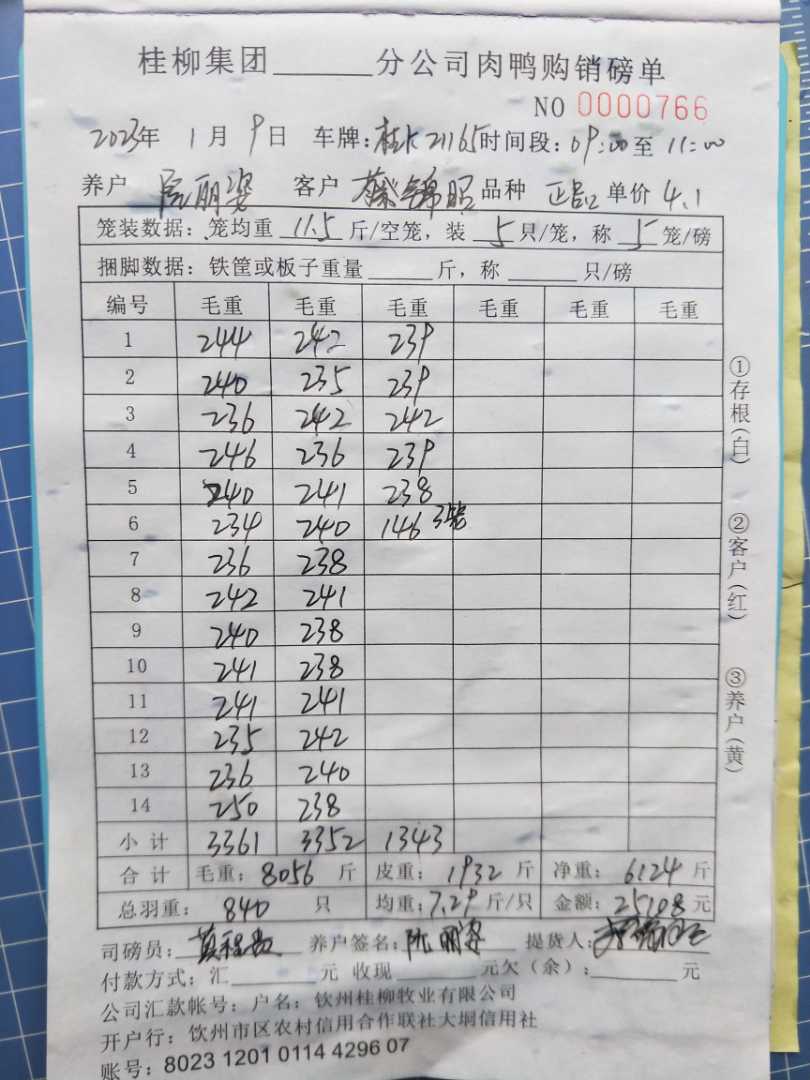 桂柳集团______分公司肉鸭购销磅单
NO 0000766
2023年 1月 9日 车牌:桂K21165 时间段:09:00至 11:00
养户 阮丽姿 客户 蔡锦昭 品种 正品 单价 4.1
笼装数据:笼均重 11.5 斤/空笼,装 5 只/笼,称 5 笼/磅
捆脚数据:铁筐或板子重量______斤,称______只/磅
编号 毛重 毛重 毛重 毛重 毛重 毛重
1 244 242 239
2 240 235 239
3 236 242 242
4 246 236 239
5 240 241 238
6 234 240 146 3笼
7 236 238
8 242 241
9 240 238
10 241 238
11 241 241
12 235 242
13 236 240
14 250 238
小计 3361 3352 1343
合计 毛重:8056 斤 皮重:1932 斤 净重:6124 斤
总羽重:840 只 均重:7.29 斤/只 金额:25108 元
司磅员: 养户签名:阮丽姿 提货人:
付款方式:汇______元 收现______元欠(余):______元
公司汇款帐号:户名:钦州桂柳牧业有限公司
开户行:钦州市区农村信用合作联社大垌信用社
账号:8023 1201 0114 4296 07
①存根(白)
②客户(红)
③养户(黄)